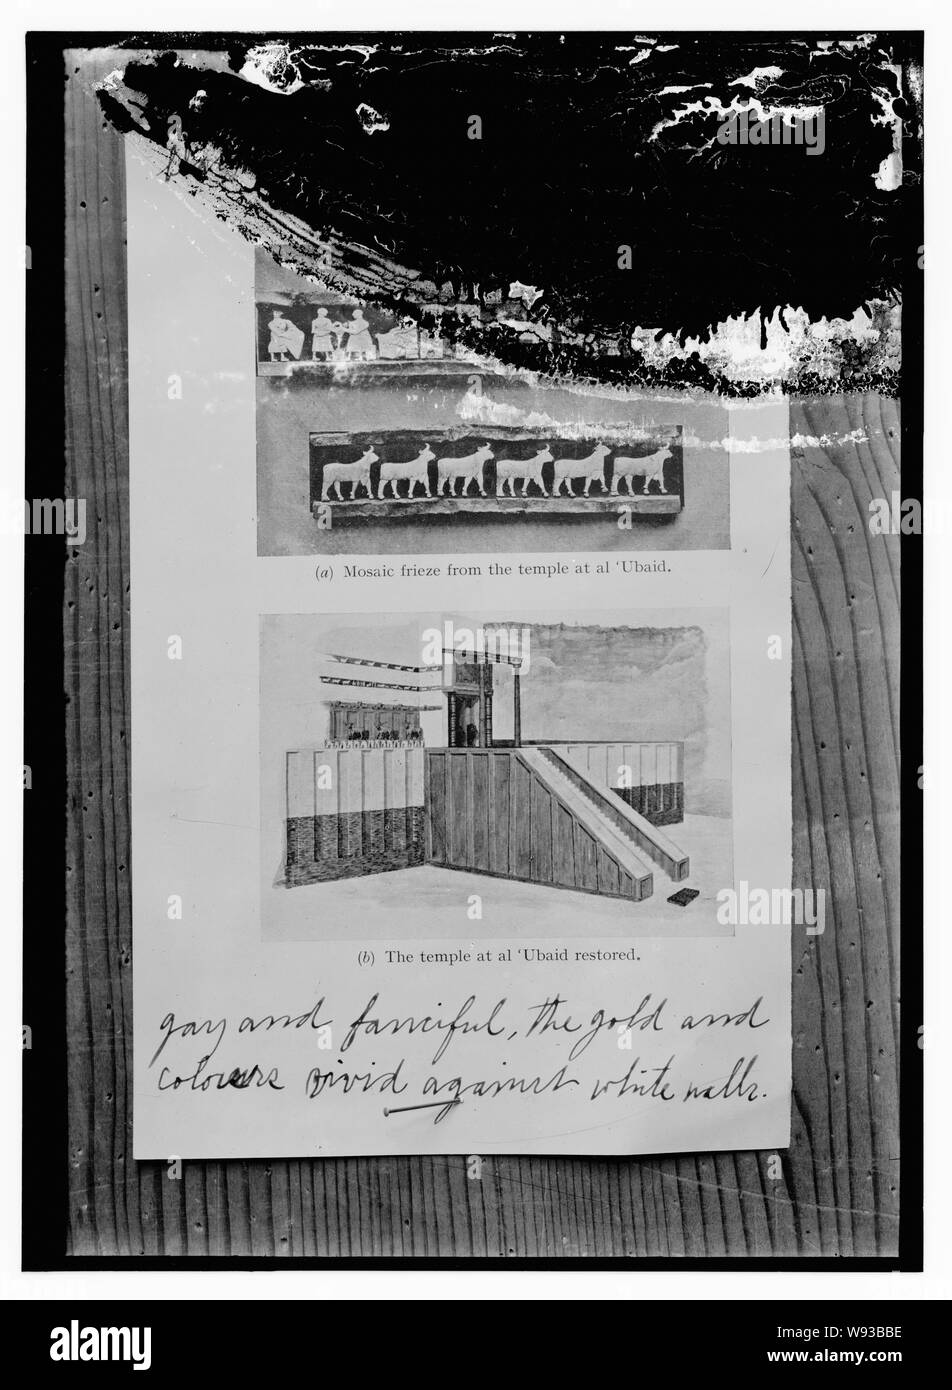 (a) Mosaic frieze from the temple at al ‘Ubaid.
(b) The temple at al ‘Ubaid restored.
gay and fanciful, the gold and
colours vivid against white walls.
alamy
Image ID: W93BBE
www.alamy.com